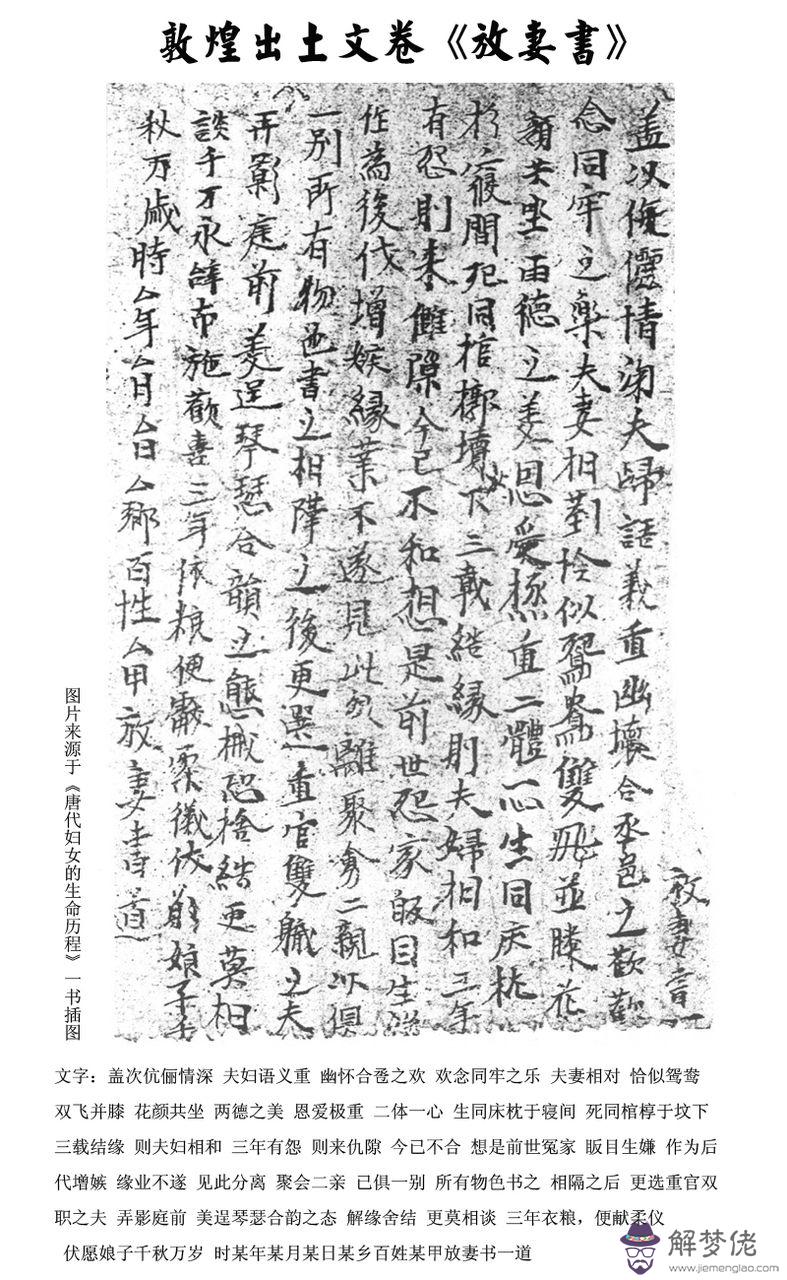 敦煌出土文卷《放妻書》
放妻書一
盖次伉儷情深夫婦語義重幽懷合巹之歡歡
念同牢之樂夫妻相對恰似鴛鴦雙飛並膝花
顏共坐兩德之美恩愛極重二體一心生同床枕
於寢間死同棺槨墳下三載結緣則夫婦相和三年
有怨則來讎隙今已不和想是前世怨家販目生嫌
作為後代增嫉緣業不遂見此分離聚會二親以俱
一別所有物色書之相隔之後更選重官雙職之夫
弄影庭前美逞琴瑟合韻之態械恐捨結更莫相
談千万永辞布施歡喜三年依粮便獻柔儀伏願娘子千
秋万歲時厶年厶月厶日厶鄉百姓厶甲放妻書道
图片来源于《唐代妇女的生命历程》一书插图
文字：盖次伉俪情深 夫妇语义重 幽怀合卺之欢 欢念同牢之乐 夫妻相对 恰似鸳鸯
双飞并膝 花颜共坐 两德之美 恩爱极重 二体一心 生同床枕于寝间 死同棺椁于坟下
三载结缘 则夫妇相和 三年有怨 则来仇隙 今已不合 想是前世冤家 眅目生嫌 作为后
代增嫉 缘业不遂 见此分离 聚会二亲 已俱一别 所有物色书之 相隔之后 更选重官双
职之夫 弄影庭前 美逞琴瑟合韵之态 解缘舍结 更莫相谈 三年衣粮，便献柔仪
伏愿娘子千秋万岁 时某年某月某日某乡百姓某甲放妻书一道
解梦佬
www.jiemenglao.com